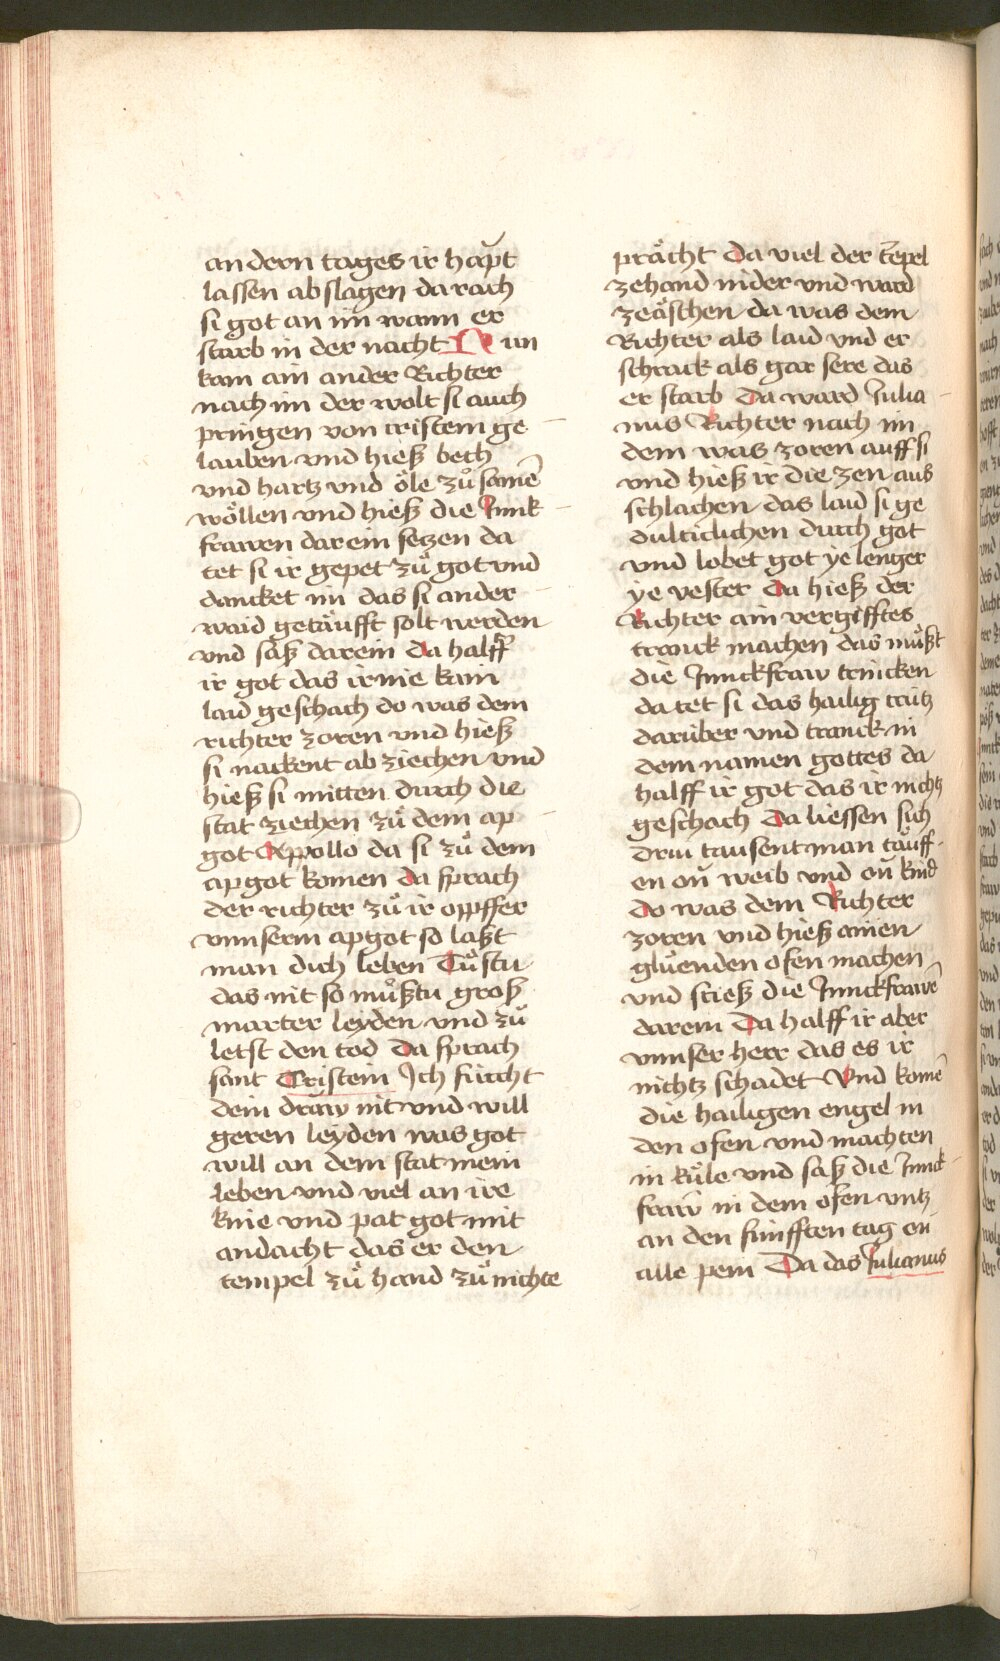 andern tages ir hapt
lassen abslagen da rach
si got an im wann er
starb in der nacht Nun
kam ain ander Richter
nach im der wolt si auch
pringen von cristem ge
lauben vnd hieß bech
vnd hartz vnd öle zů samē
wöllen vnd hieß die Junk
frawen darein setzen da
tet si ir gepet zů got vnd
dancket im das si ander
waid getäufft solt werden
vnd saß darein da halff
ir got das ir nie kain
laid geschach do was dem
richter zoren vnd hieß
si nackent ab ziechen vnd
hieß si mitten durch die
stat ziechen zů dem ap
got Appollo da si zů dem
apgot komen da sprach
der richter zů ir oppffer
vnnserm apgot so laßt
man dich leben Tůstu
das nit so můßtu groß
marter leyden vnd zů
letst den tod Da sprach
sant Cristein Ich fürcht
dein dräw nit vnd will
geren leyden was got
will an dem stat mein
leben vnd viel an ire
knie vnd pat got mit
andacht das er den
tempel zů hand zů nichte
prächt Da viel der tēpel
zehand nider vnd ward
zeäschen da was dem
Richter als laid vnd er
schrack als gar sere das
er starb Da ward Julia
nus Richter nach im
dem was zoren auff si
vnd hieß ir die zen aus
schlachen das laid si ge
dulticlichen durch got
vnd lobet got ye lenger
ye vester Da hieß der
Richter ain vergifftes
tranck machen das můßt
die Junckfraw trincken
da tet si das hailig crütz
darüber vnd tranck in
dem namen gottes da
halff ir got das ir nichtz
geschach Da liessen sich
driu tausent man täuff
en on weib vnd on kind
Do was dem Richter
zoren vnd hieß ainen
glüenden ofen machen
vnd stieß die Junckfrawē
darein Da halff ir aber
vnnser herr das es ir
nichtz schadet Vnd komē
die hailigen engel in
den ofen vnd machten
in küle vnd saß die Junck
fraw in dem ofen vntz
an den fünfften tag on
alle pein Da das Julianus